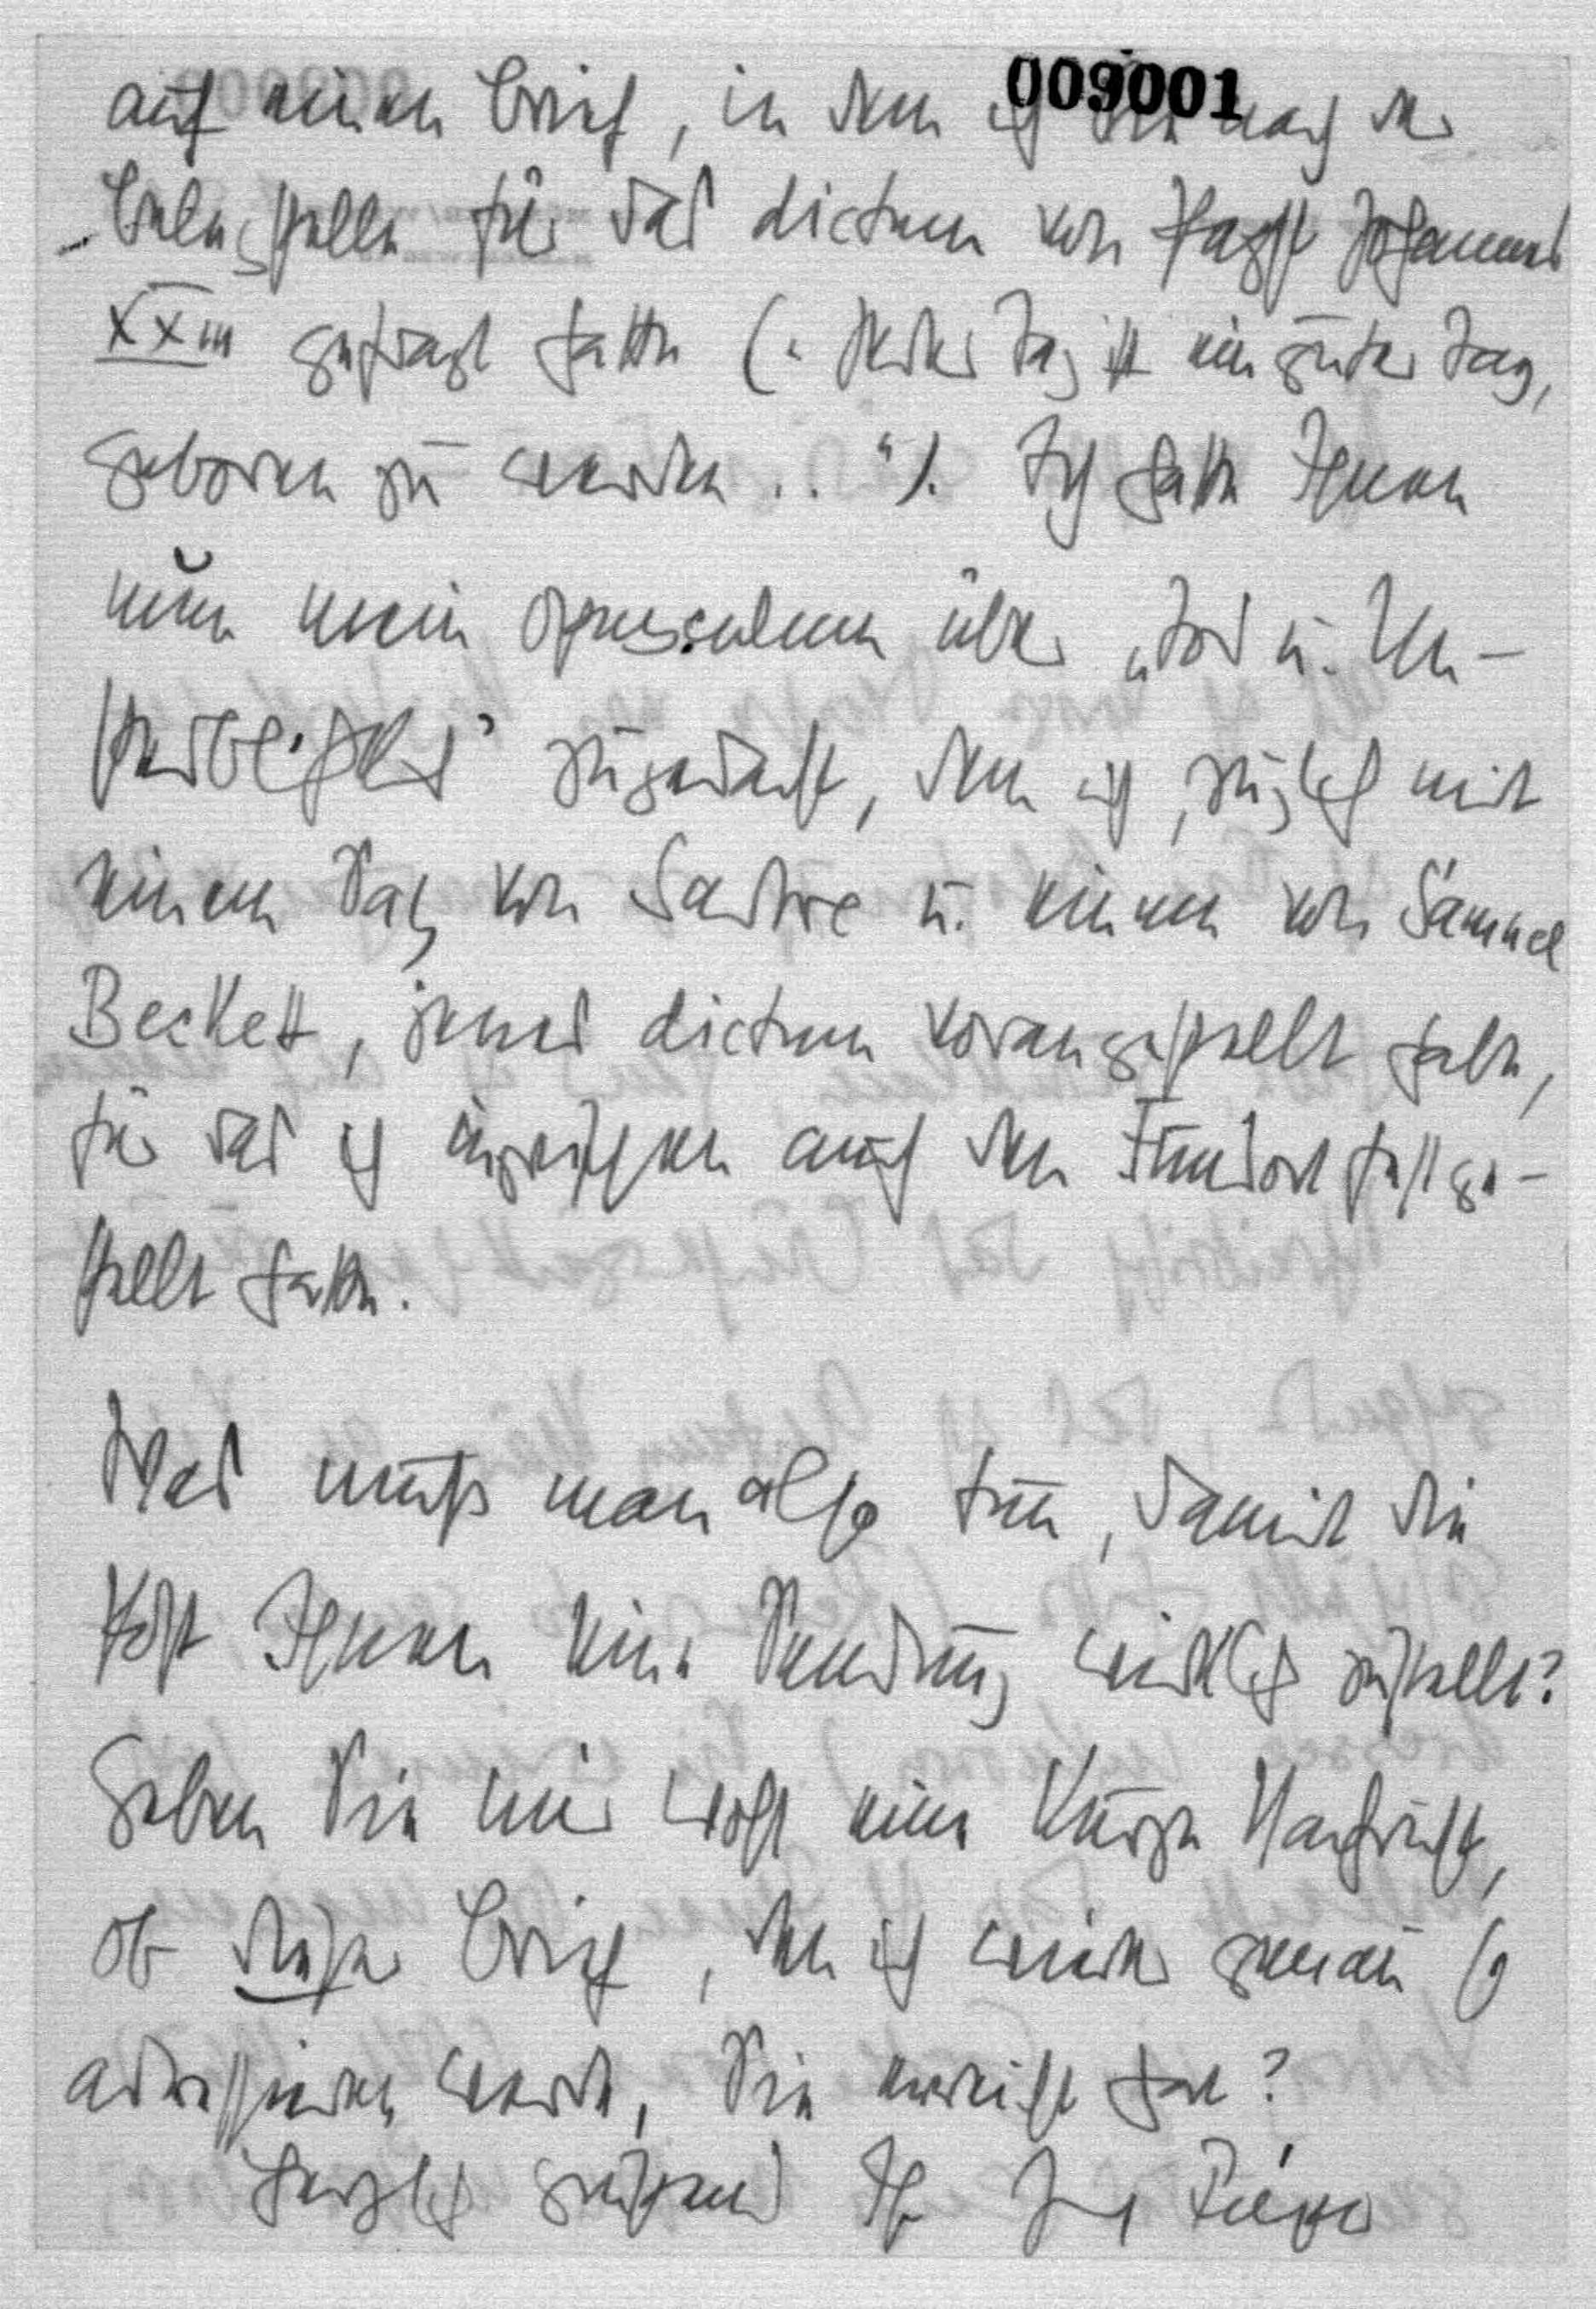 009001
auf einen Brief, in dem ich Sie nach der
Belegstelle für das dictum von Papst Johannes
XXIII gefragt hatte („Jeder Tag ist ein guter Tag,
geboren zu werden .. “). Ich hatte Ihnen
nun mein opusculum über „Tod u. Un-
sterblichkeit” zugedacht, dem ich, zugleich mit
einem Satz von Sartre u. einem von Samuel
Beckett, jenes dictum vorangestellt habe,
für das ich inzwischen auch den Fundort festge-
stellt hatte.
Was muß man also tun, damit die
Post Ihnen eine Sendung wirklich zustellt?
Geben Sie mir wohl eine kurze Nachricht,
ob dieser Brief, den ich wieder genau so
adressieren werde, Sie erreicht hat?
Herzlich grüßend Ihr Josef Pieper